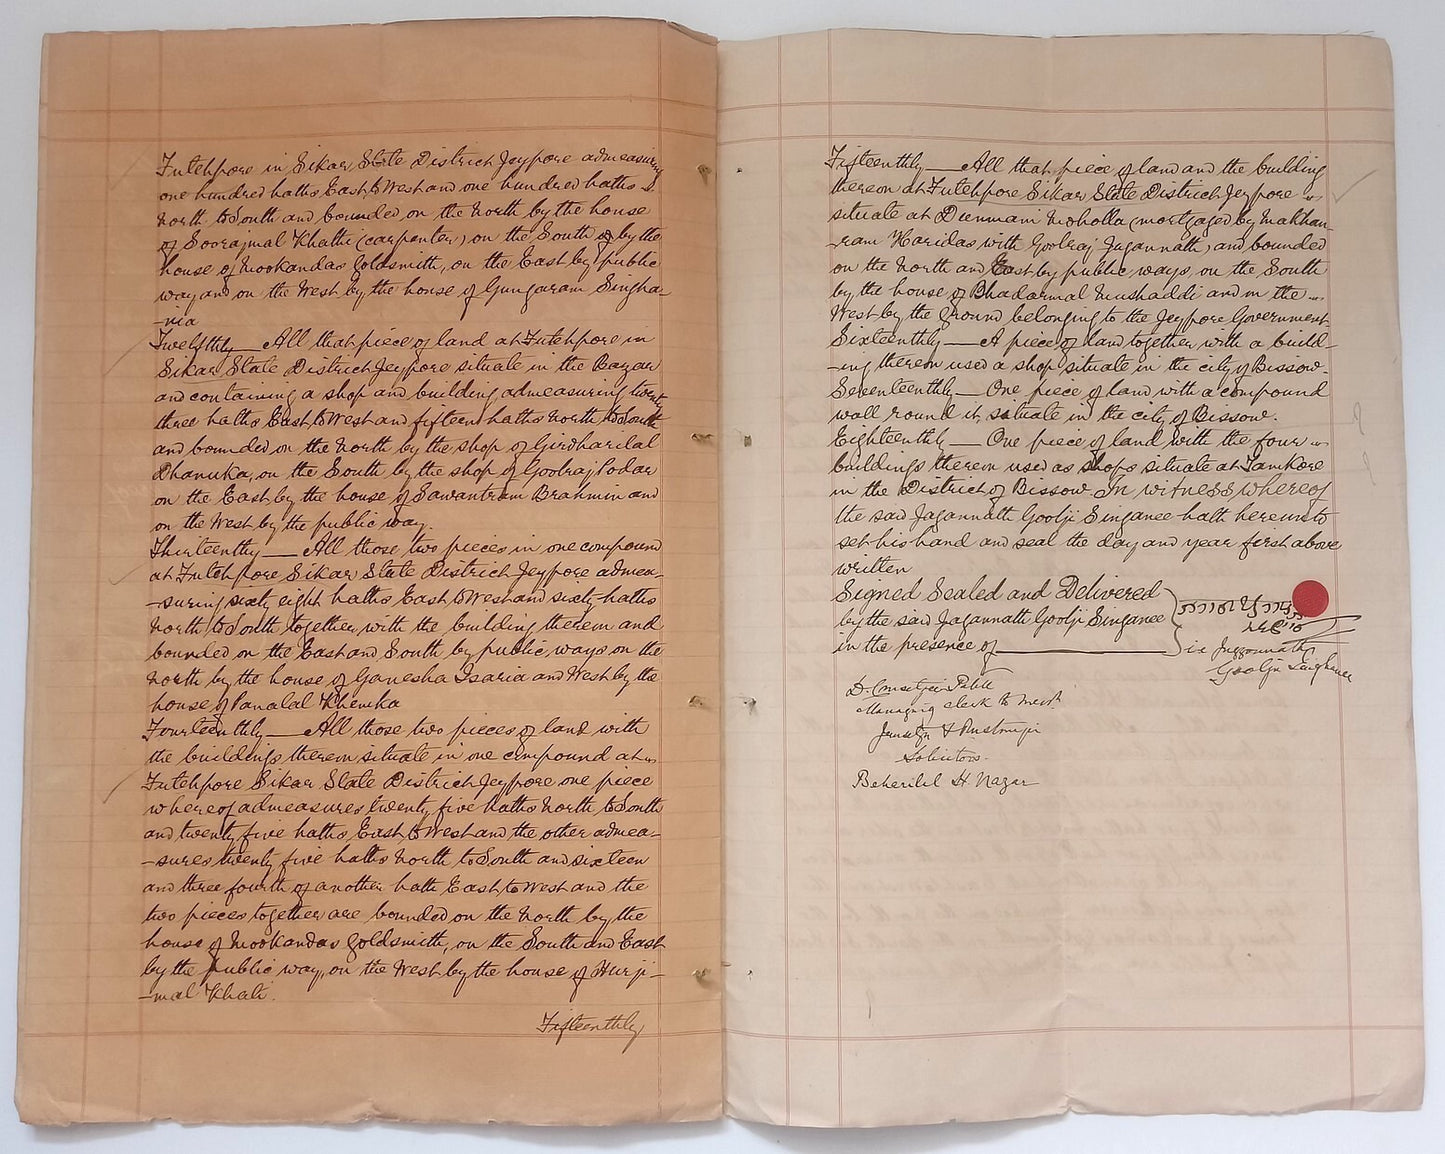 Futehpore in Sikar State District Jeypore admeasuring
one hundred haths East to West and one hundred haths
North to South and bounded on the North by the house
of Soorajmal Khatti (carpenter) on the South by the
house of Mookandas Goldsmith, on the East by public
way and on the West by the house of Gungaram Singha-
-nia
Twelfthly — All that piece of land at Futehpore in
Sikar State District Jeypore situate in the Bazar
and containing a shop and building admeasuring twenty
three haths East to West and fifteen haths North to South
and bounded on the North by the shop of Girdharilal
Dhanuka, on the South by the shop of Goolraj Podar
on the East by the house of Sawantram Brahmin and
on the West by the public way.
Thirteenthly — All those two pieces in one compound
at Futehpore Sikar State District Jeypore admea-
-suring sixty eight haths East to West and sixty haths
North to South together with the building thereon and
bounded on the East and South by public ways on the
North by the house of Ganesha Isaria and West by the
house of Panalal Khemka
Fourteenthly — All those two pieces of land with
the buildings thereon situate in one compound at
Futehpore Sikar State District Jeypore one piece
whereof admeasures twenty five haths North to South
and twenty five haths East to West and the other admea-
-sures twenty five haths North to South and sixteen
and three fourth of another hath East to West and the
two pieces together are bounded on the North by the
house of Mookandas Goldsmith, on the South and East
by the public way, on the West by the house of Hurji-
-mal Khati.
Fifteenthly
Fifteenthly — All that piece of land and the building
thereon at Futehpore Sikar State District Jeypore
situate at Moholla (mortgaged by Makhan-
-ram Haridas with Goolraj Jagannath) and bounded
on the North and East by public ways, on the South
by the house of Bhadarmal Mushaddi and on the
West by the ground belonging to the Jeypore Government
Sixteenthly — A piece of land together with a build-
-ing thereon used a shop situate in the city of Bissow.
Seventeenthly — One piece of land with a compound
wall round it, situate in the city of Bissow.
Eighteenthly — One piece of land with the four
buildings thereon used as shops situate at Tamkore
in the District of Bissow. In witness whereof
the said Jagannath Goolji Singanee hath hereunto
set his hand and seal the day and year first above
written
Signed Sealed and Delivered
by the said Jagannath Goolji Singanee
in the presence of
ie Juggonnath
Goolji
Managing clerk to Messrs
Solicitors.
Beharilal H. Nagar